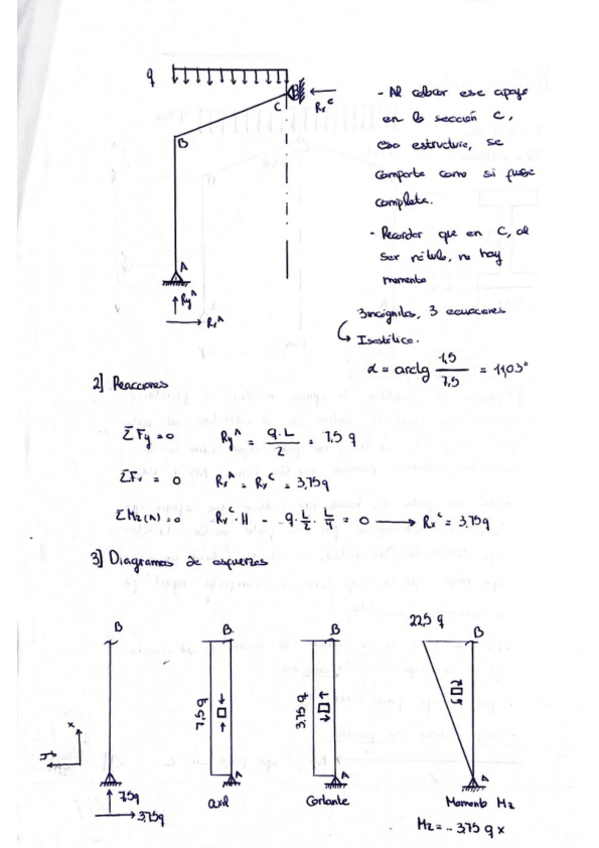 q
C
Rx^C
B
A
Ry^A
Rx^A
- Al colocar ese apoyo
en la sección C,
esa estructura, se
comporta como si fuese
completa.
- Recordar que en C, al
ser rótula, no hay
momento
3 incógnitas, 3 ecuaciones
Isostático.
α = arctg 1,5/7,5 = 11,03°
2] Reacciones
ΣFy = 0 Ry^A = q·L/2 = 7,5 q
ΣFx = 0 Rx^A = Rx^C = 3,75 q
ΣMz(A) = 0 Rx^C · H - q·L/2 · L/4 = 0 → Rx^C = 3,75q
3] Diagramas de esfuerzos
B B B 22,5 q B
7,5 q 3,75 q
x
y
A A A
7,5q
3,75q
axil Cortante Momento Mz
Mz = -3,75 q x